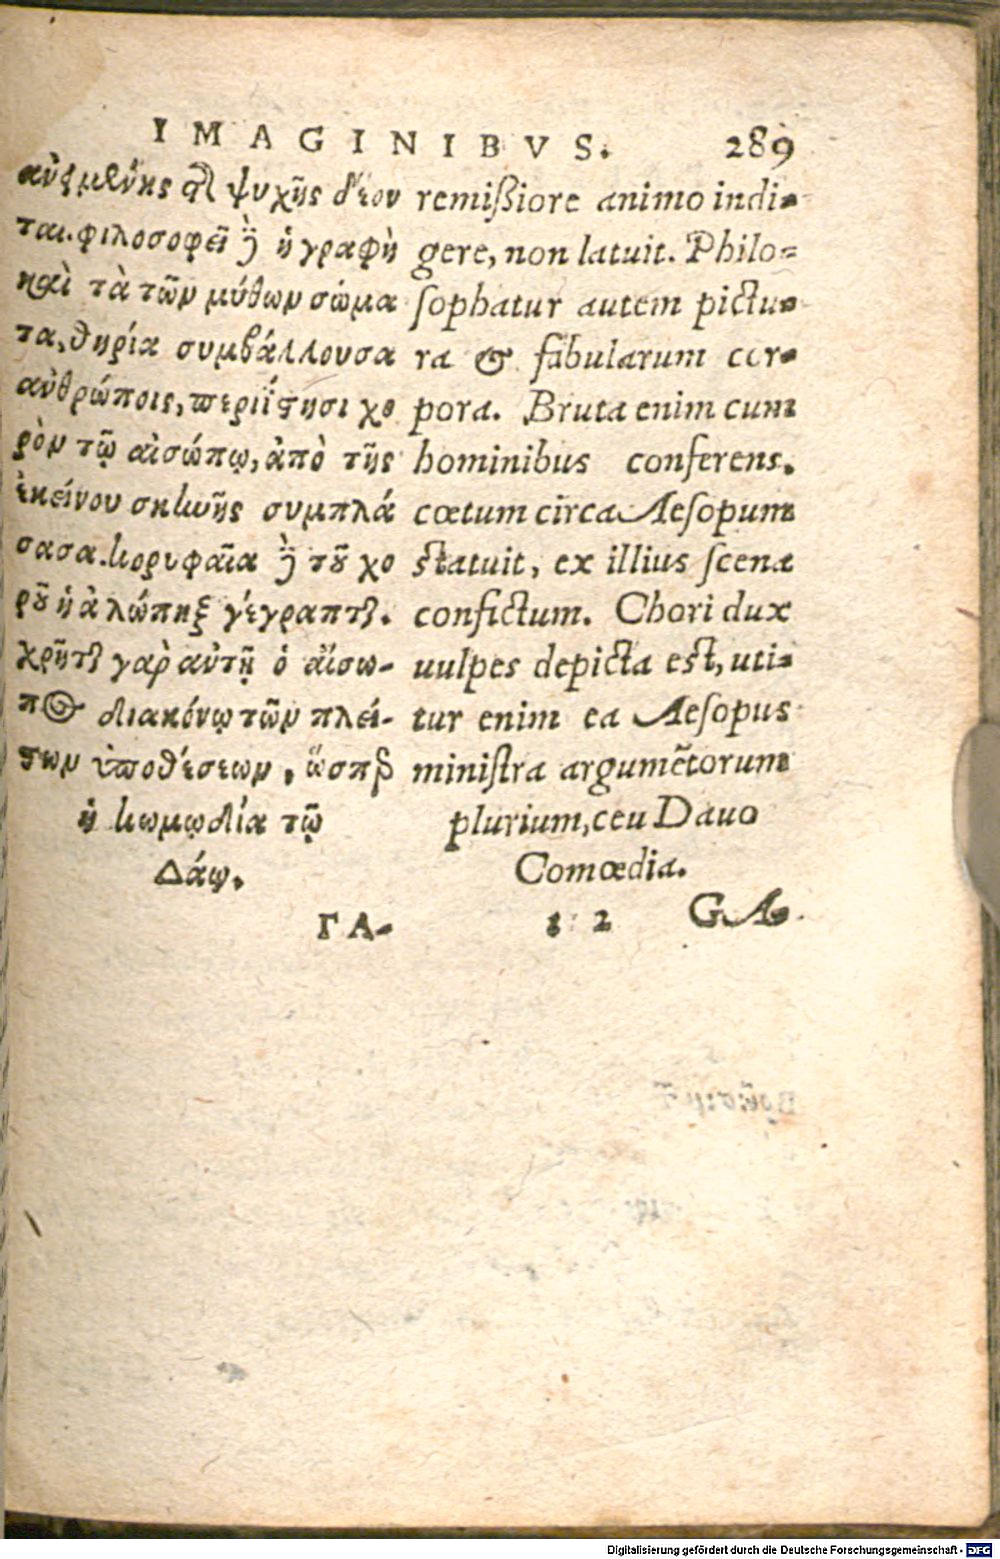 IMAGINIBVS. 289
ἀνειμένης τῆς ψυχῆς δέον
ται. φιλοσοφεῖ δὲ ἡ γραφὴ
καὶ τὰ τῶν μύθων σώμα
τα, θηρία συμβάλλουσα
ἀνθρώποις, περιΐστησι χο
ρὸν τῷ αἰσώπῳ, ἀπὸ τῆς
ἐκείνου σκηνῆς συμπλά
σασα. κορυφαῖα δὲ τοῦ χο
ροῦ ἡ ἀλώπηξ γέγραπται.
χρῆται γαρ αὐτῇ ὁ αἴσω-
πος διακόνῳ τῶν πλεί-
στων ὑποθέσεων, ὥσπερ
ἡ κωμῳδία τῷ
Δάῳ.
ΓΑ-
remißiore animo indi-
gere, non latuit. Philo-
sophatur autem pictu-
ra & fabularum cor-
pora. Bruta enim cum
hominibus conferens.
cœtum circa Aesopum
statuit, ex illius scena
confictum. Chori dux
uulpes depicta est, uti-
tur enim ea Aesopus
ministra argumẽtorum
plurium, ceu Dauo
Comœdia.
t 2 GA-
Digitalisierung gefördert durch die Deutsche Forschungsgemeinschaft - DFG